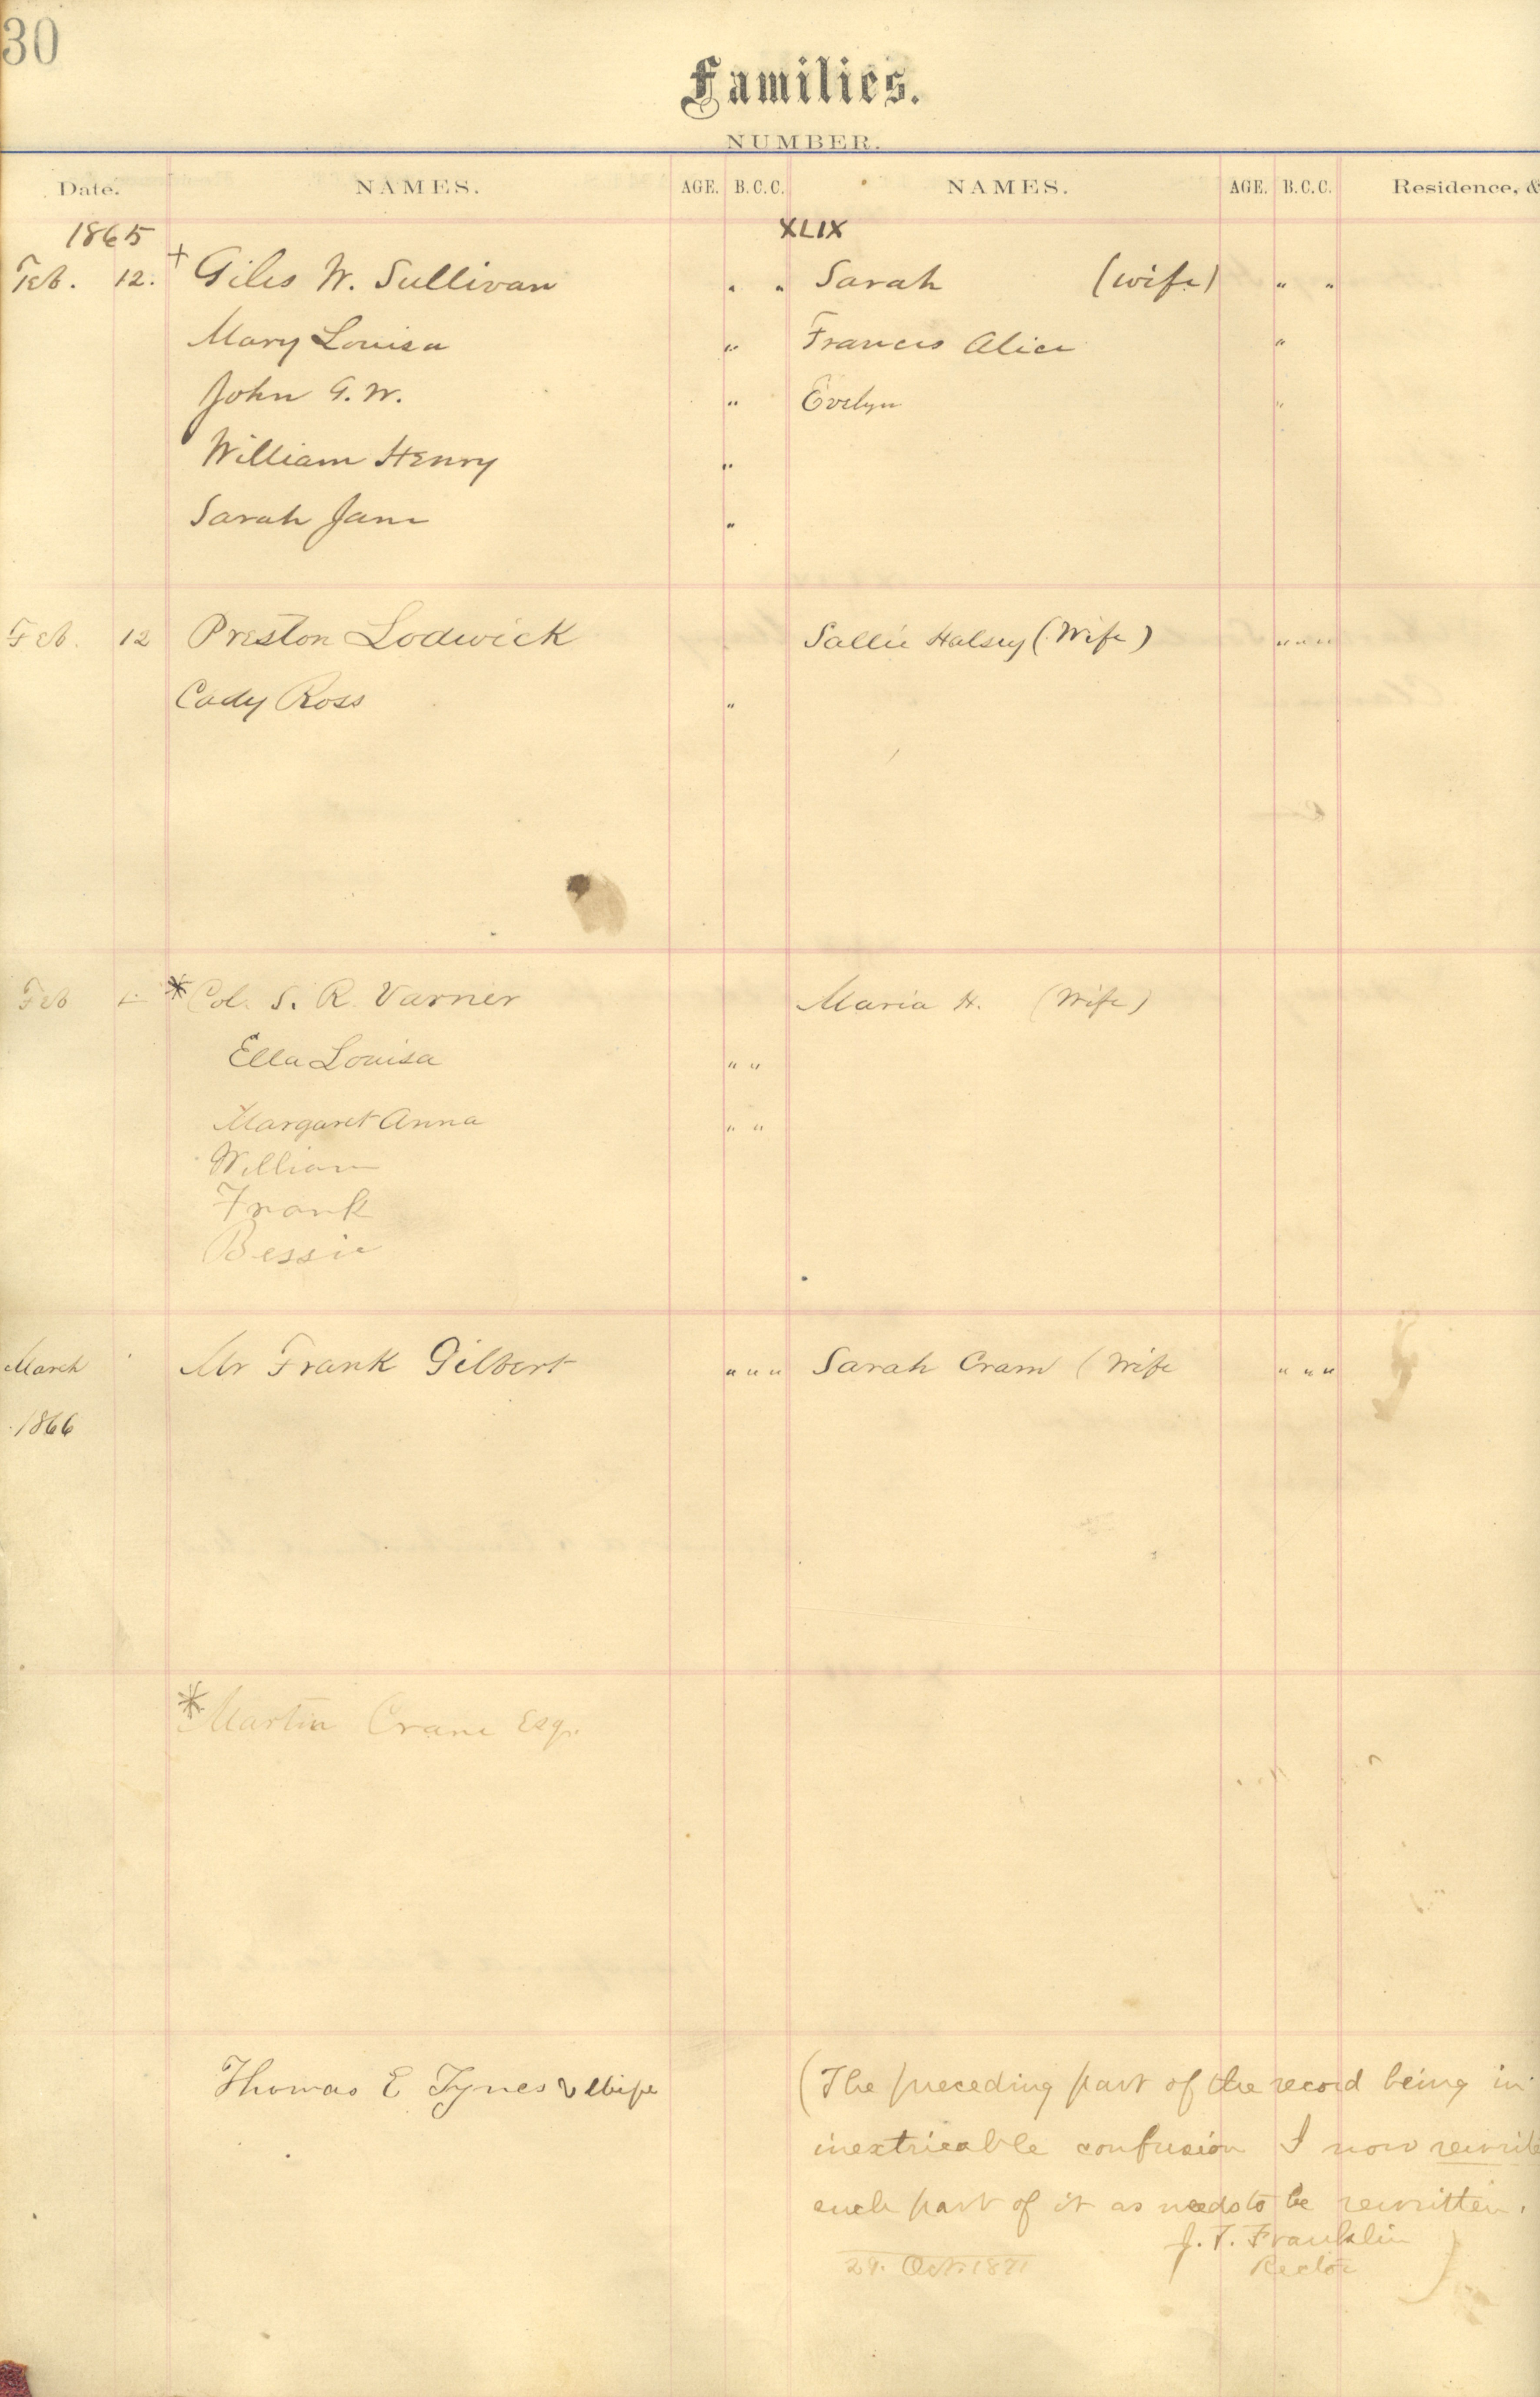 30
Families.
NUMBER.
Date. NAMES. AGE. B.C.C. NAMES. AGE. B.C.C. Residence, &
1865 XLIX
Feb. 12. + Giles W. Sullivan " " Sarah (wife) " "
Mary Louisa " Frances Alice "
John G. W. " Evelyn "
William Henry "
Sarah Jane "
Feb. 12 Preston Lodwick Sallie Halsey (Wife) " " "
Cady Ross "
Feb * Col. S. R. Varner Maria H. (Wife)
Ella Louisa " "
Margaret Anna " "
William
Frank
Bessie
March Mr Frank Gilbert " " " Sarah Cram (Wife " " "
1866
* Martin Crane Esq.
Thomas E Tynes & Wife (The preceding part of the record being in
inextricable confusion I now rewrite
such part of it as needs to be rewritten.
J. T. Franklin
29. Oct. 1871 Rector )